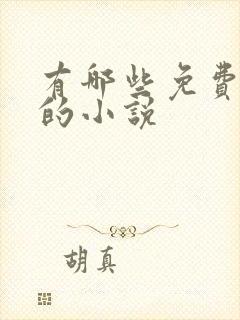 有哪些免费
的小说
胡真